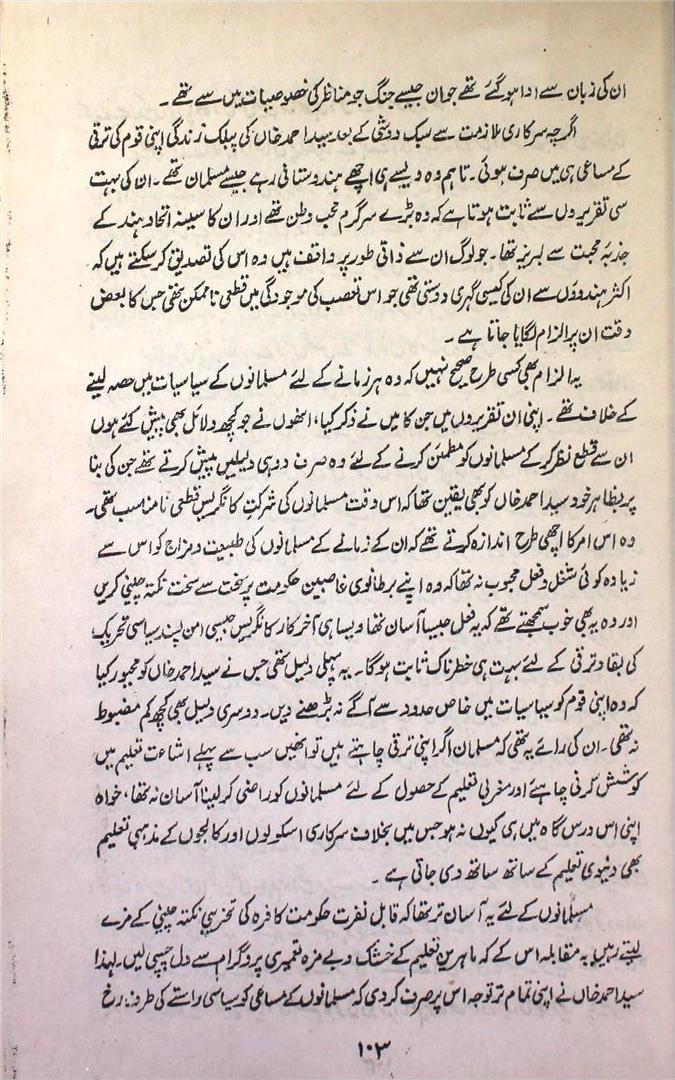 ان کی زبان سے ادا ہو گئے تھے جو ان جیسے جنگ جو مناظر کی خصوصیات میں سے تھے۔
اگرچہ سرکاری ملازمت سے سبک دوشی کے بعد سید احمد خاں کی پبلک زندگی اپنی قوم کی ترقی
کے مساعی ہی میں صرف ہوئی۔ تاہم وہ ویسے ہی اچھے ہندوستانی رہے جیسے مسلمان تھے۔ ان کی بہت
سی تقریروں سے ثابت ہوتا ہے کہ وہ بڑے سرگرم محب وطن تھے اور ان کا سینہ اتحاد ہند کے
جذبۂ محبت سے لبریز تھا۔ جو لوگ ان سے ذاتی طور پر واقف ہیں وہ اس کی تصدیق کر سکتے ہیں کہ
اکثر ہندوؤں سے ان کی کیسی گہری دوستی تھی جو اس تعصب کی موجودگی میں قطعی ناممکن تھی جس کا بعض
وقت ان پر الزام لگایا جاتا ہے۔
یہ الزام بھی کسی طرح صحیح نہیں کہ وہ ہر زمانے کے لئے مسلمانوں کے سیاسیات میں حصہ لینے
کے خلاف تھے۔ اپنی ان تقریروں میں جن کا میں نے ذکر کیا، انھوں نے جو کچھ دلائل بھی پیش کئے ہوں
ان سے قطع نظر کر کے مسلمانوں کو مطمئن کرنے کے لئے وہ صرف دو ہی دلیلیں پیش کرتے تھے جن کی بنا
پر بظاہر خود سید احمد خاں کو بھی یقین تھا کہ اس وقت مسلمانوں کی شرکتِ کانگریس قطعی نامناسب تھی۔
وہ اس امر کا اچھی طرح اندازہ کرتے تھے کہ ان کے زمانے کے مسلمانوں کی طبیعت و مزاج کو اس سے
زیادہ کوئی شغل و فعل محبوب نہ تھا کہ وہ اپنے برطانوی غاصبین حکومت پر سخت سے سخت نکتہ چینی کریں
اور وہ یہ بھی خوب سمجھتے تھے کہ یہ فعل جیسا آسان تھا ویسا ہی آخر کار کانگریس جیسی امن پسند سیاسی تحریک
کی بقاد ترقی کے لئے بہت ہی خطرناک ثابت ہوگا۔ یہ پہلی دلیل تھی جس نے سید احمد خاں کو مجبور کیا
کہ وہ اپنی قوم کو سیاسیات میں خاص حدود سے آگے نہ بڑھنے دیں۔ دوسری دلیل بھی کچھ کم مضبوط
نہ تھی۔ ان کی رائے یہ تھی کہ مسلمان اگر اپنی ترقی چاہتے ہیں تو انھیں سب سے پہلے اشاعت تعلیم میں
کوشش کرنی چاہئے اور مغربی تعلیم کے حصول کے لئے مسلمانوں کو راضی کر لینا آسان نہ تھا، خواہ
اپنی اس درس گاہ میں ہی کیوں نہ ہو جس میں بخلاف سرکاری اسکولوں اور کالجوں کے مذہبی تعلیم
بھی دنیوی تعلیم کے ساتھ ساتھ دی جاتی ہے۔
مسلمانوں کے لئے یہ آسان تر تھا کہ قابل نفرت حکومت کافرہ کی تخریبی نکتہ چینی کے مزے
لیتے رہیں بہ مقابلہ اس کے کہ ماہرین تعلیم کے خشک و بے مزہ تعمیری پروگرام سے دل چسپی لیں۔ لہذا
سید احمد خاں نے اپنی تمام تر توجہ اس پر صرف کر دی کہ مسلمانوں کے مساعی کو سیاسی راستے کی طرف رخ
۱۰۳